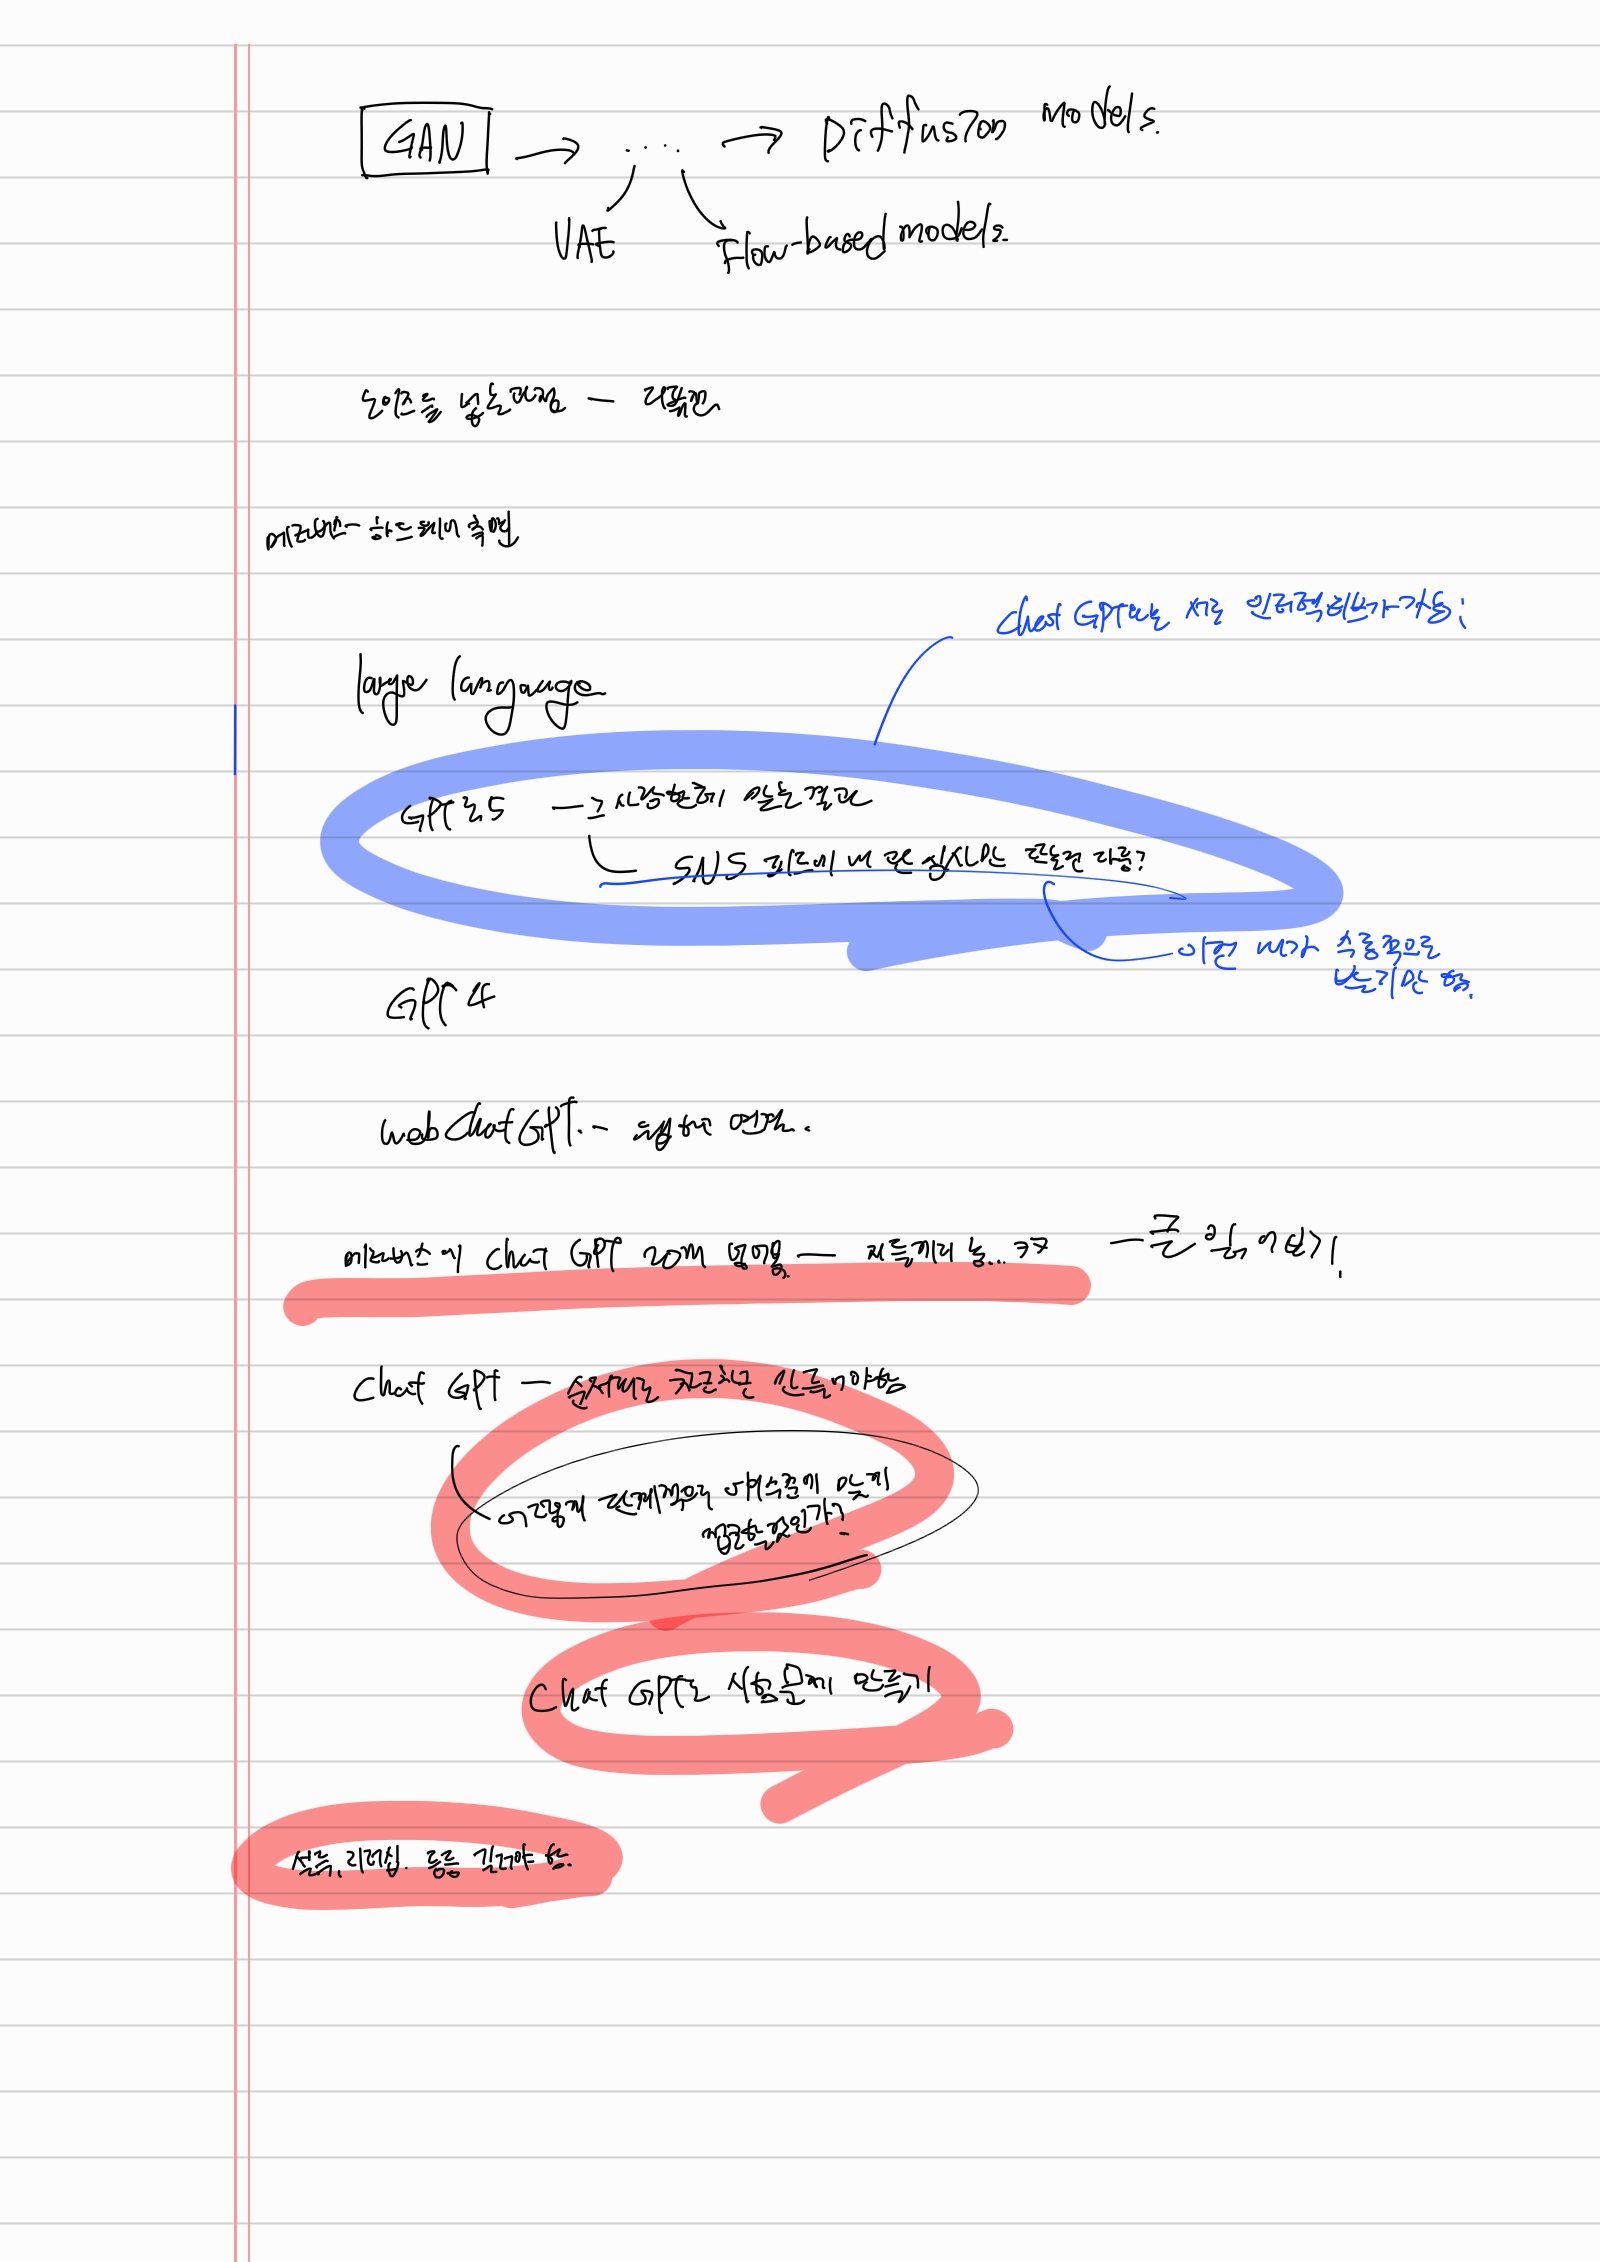 GAN → .... → Diffusion models.
VAE Flow-based models.
노이즈를 넣는과정 — 디퓨전
메타버스 - 하드웨어 측면
Chat GPT와는 서로 인터렉티브가 가능;
large langauge
GPT 3.5 → 사람한테 맞는 결과
SNS 피드에 내 관심사만 만든건 다름?
이건 내가 수동적으로
받는지만 함.
GPT 4
web Chat GPT. - 웹하고 연결.
메타버스에 Chat GPT 20개 넣어둠 — 지들끼리 놂... ㅋㅋ — 글 읽어보기!
Chat GPT — 순서대로 차근차근 만들어야함
어떻게 단계적으로 나의수준에 맞게
접근할것인가?
Chat GPT로 시험문제 만들기
설득, 리더십. 등등 길러야 함.